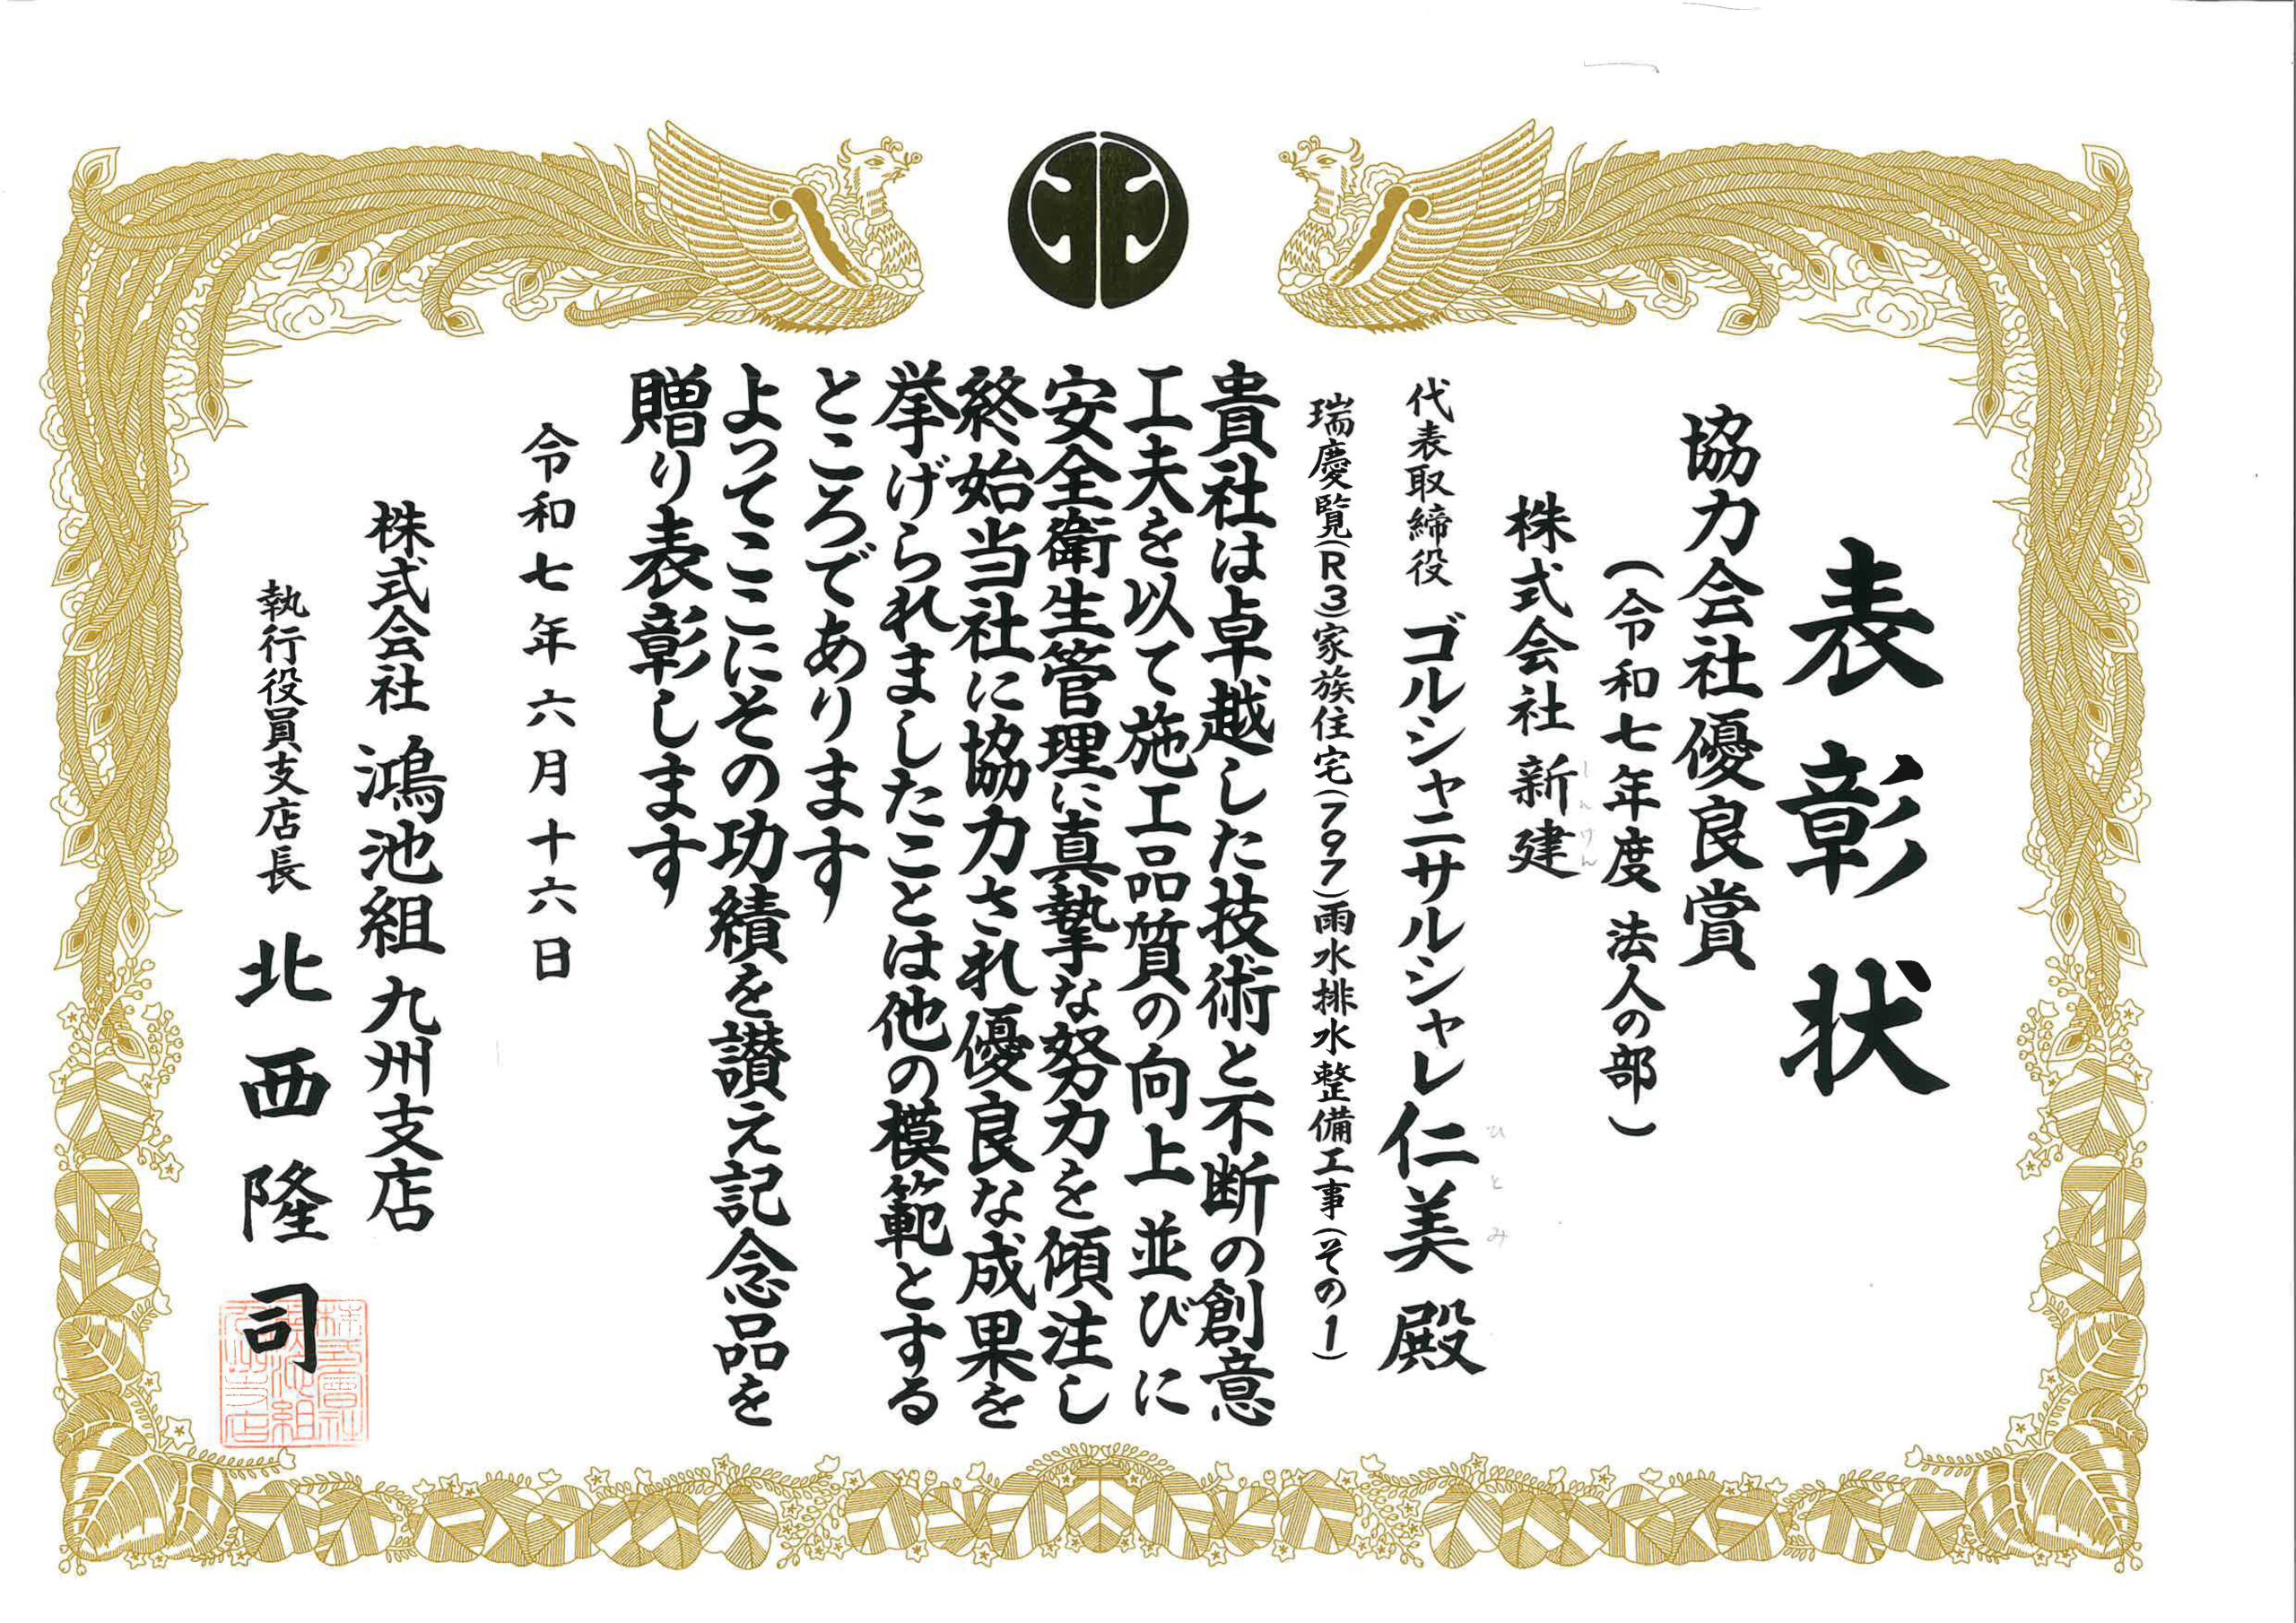 表彰状
協力会社優良賞
(令和七年度 法人の部)
株式会社 新建
しんけん
代表取締役 ゴルシャニサルシャレ仁美 殿
ひとみ
瑞慶覧(R3)家族住宅(797)雨水排水整備工事(その1)
貴社は卓越した技術と不断の創意
工夫を以て施工品質の向上並びに
安全衛生管理に真摯な努力を傾注し
終始当社に協力され優良な成果を
挙げられましたことは他の模範とする
ところであります
よってここにその功績を讃え記念品を
贈り表彰します
令和七年六月十六日
株式会社 鴻池組 九州支店
執行役員支店長 北西隆司